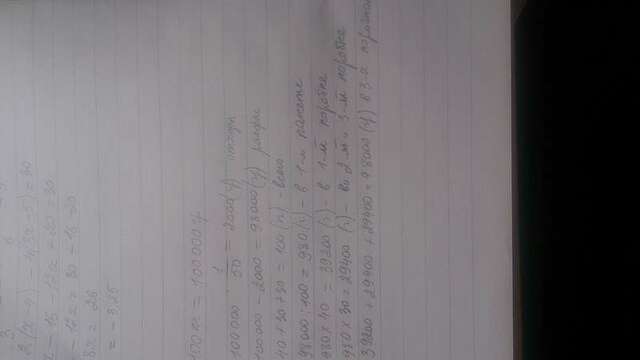 3 3
2(x-4) - 4(3x-5) = 30
- 12x + 20 = 30
- 12x = 30
8x = 26
= - 3,25
100 кг = 100 000 г
100000 · 1/50 = 2000 (г) отходы
100000 - 2000 = 98000 (г)
40 + 30 + 30 = 100 (п) - всего
98000 : 100 = 980 (г) - в 1-м пакете
980 x 40 = 39200 (г) - в 1-й коробке
980 x 30 = 29400 (г) - во 2-й и 3-й коробке
39200 + 29400 + 29400 = 98000 (г) в 3-х